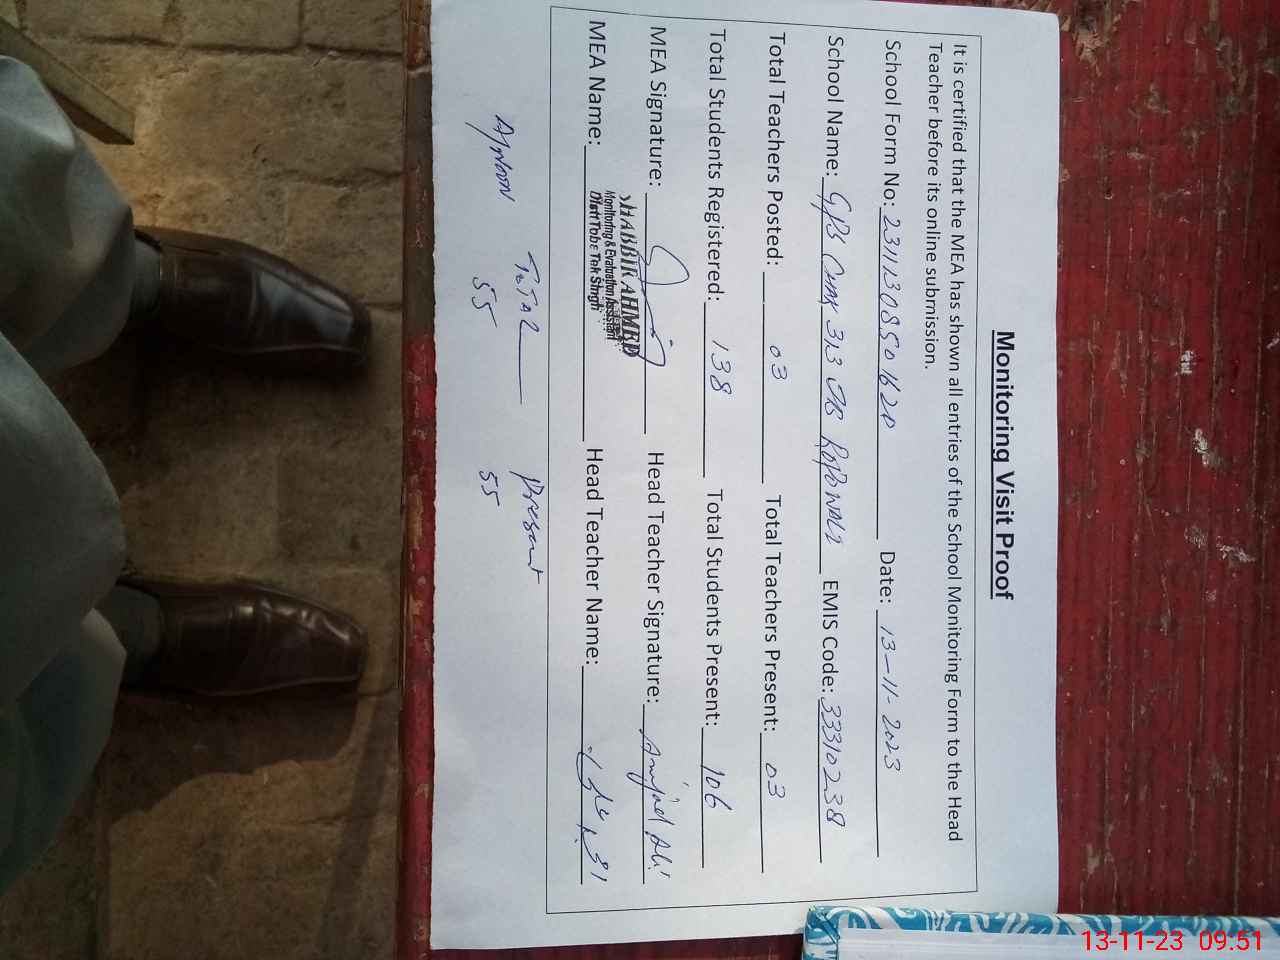 Monitoring Visit Proof
It is certified that the MEA has shown all entries of the School Monitoring Form to the Head
Teacher before its online submission.
School Form No: 23111308501620 Date: 13-11-2023
School Name: GPS Chak 313 JB EMIS Code: 33310238
Total Teachers Posted: 03 Total Teachers Present: 03
Total Students Registered: 138 Total Students Present: 106
MEA Signature: Head Teacher Signature: Amjad Ali
MEA Name: SHABBIR AHMED Head Teacher Name:
Monitoring & Evaluation Assistant
Distt Toba Tek Singh
Total Present
55 55
13-11-23 09:51